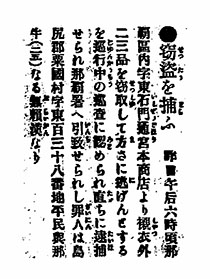 ●窃盗を捕ふ　昨日午后六時頃那
覇區内字東石門通宮本商店より襯衣外
二三品を窃取して方さに逃げんとする
を巡行中の巡査に認められ直ちに逮捕
せられ那覇署へ引致せられし罪人は島
尻郡粟國村字東百三十八番地平民與那
牛(二五)なる無頼漢なり